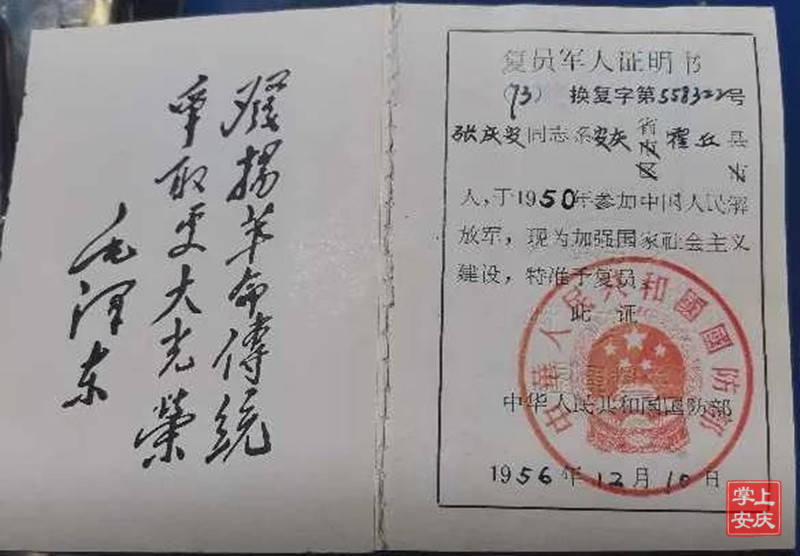 發揚革命傳統
爭取更大光榮
毛泽东
复员军人证明书
(73) 换复字第558322号
张庆安同志系安灰省市区霍丘县市
人,于1950年参加中国人民解
放军,现为加强国家社会主义
建设,特准予复员,
此证
中华人民共和国国防部
1956年12月10日
中華人民共和國國防部
掌上
安庆